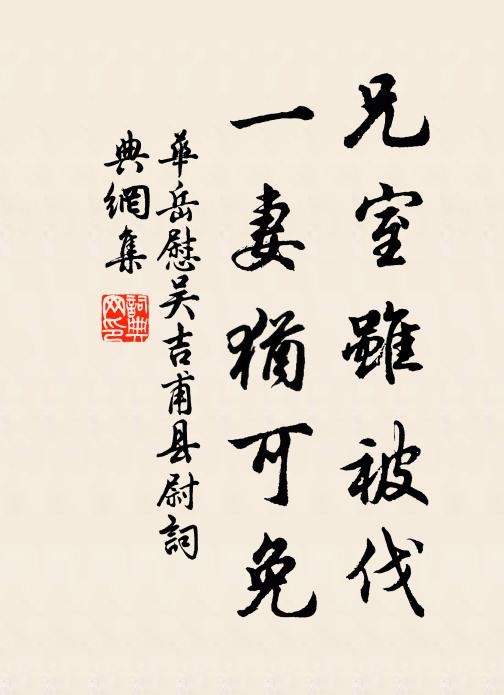 兄室雖被伐
一妻猶可免
華岳慰吴吉甫县尉詞
典網集
詞典
网印